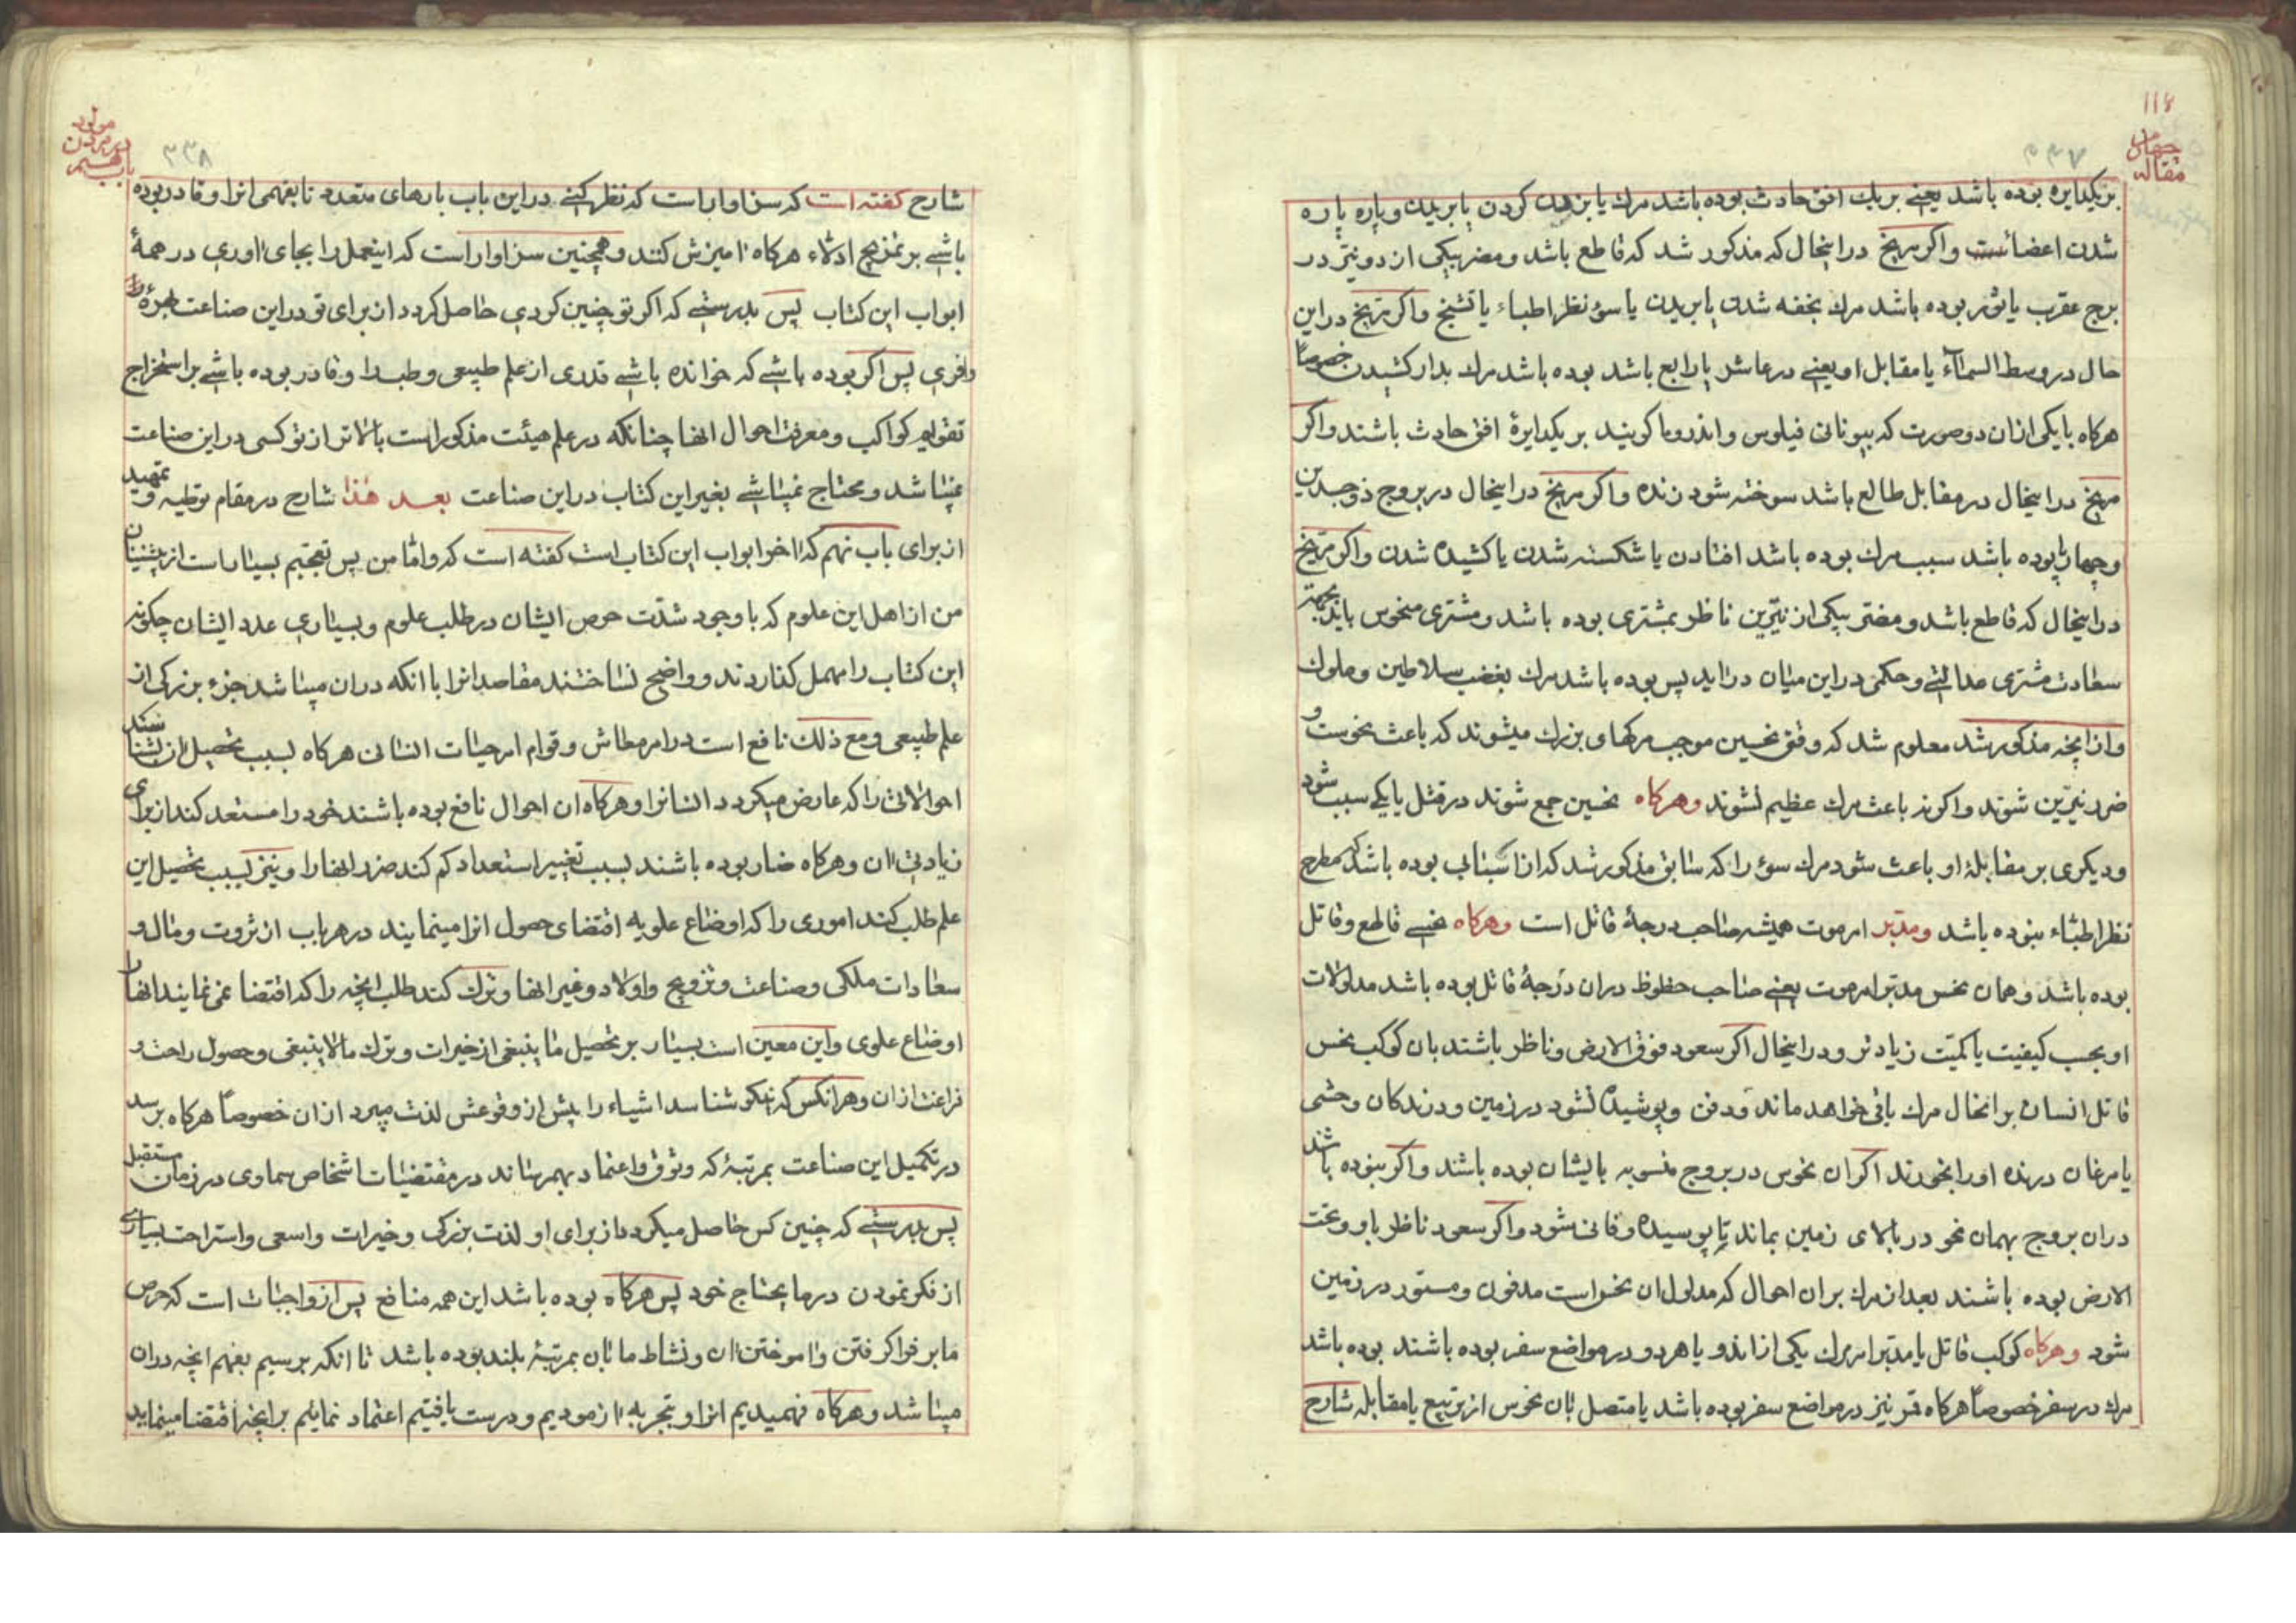 ۱۱۸
مقاله
چهارم
۳۳۷
بریکدایره بوده باشد یعنے بریك افق حادث بوده باشد مرك یا بزهدن کردن یا بریدن و پاره پاره
شدن اعضائست واکر مریخ دراینحال که مذکور شد که قاطع باشد و مضر بیکی از دو نیّر در
برج عقرب یا ثور بوده باشد مرك بخفه شدن یا بریدن یا سوء نظر اطباء یا تشنج واکر مریخ دراین
حال در وسط السماء یا مقابل او یعنے در عاشر یا رابع باشد بوده باشد مرك بدار کشیدن خصوصاً
هرکاه با یکی ازان دو صورت که بیونانی فیلوس و اندرومدا کویند بریکدایرهٔ افق حادث باشند واکر
مریخ دراینحال در مقابل طالع باشد سوخته شود زنده واکر مریخ دراینحال در بروج ذوجسدین
وچهارپا بوده باشد سبب مرك بوده باشد افتادن یا شکسته شدن یا کشیده شدن واکر مریخ
دراینحال که قاطع باشد و مضر بیکی از نیّرین ناظر بمشتری بوده باشد و مشتری منحوس باید بجهة
سعادت مشتری عدالتے وحکمی دراین میان دراید پس بوده باشد مرك بغضب سلاطین و ملوك
وازانچه مذکور شد معلوم شد که وقتی نحسین موجب مرکهای بزرك میشوند که باعث نحوست و
ضرر نیّرین شوند واکرنه باعث مرك عظیم نشوند وهرکاه نحسین جمع شوند در قتل یا یکے سبب شود
ودیکری بر مقابلهٔ او باعث شود مرك سوء را که سابق مذکور شد که از اسبابی بوده باشد که مطرح
نظر اطباء نبوده باشد ومدبّر امر موت همیشه صاحب درجهٔ قاتل است وهرکاه نحسے قاطع وقاتل
بوده باشد وهمان نحس مدبّر امر موت یعنے صاحب حظوظ دران درجهٔ قاتل بوده باشد مدلولات
او بحسب کیفیت یا کمیّت زیادتر ودراینحال اکر سعود فوق الارض وناظر باشند بان کوکب نحس
قاتل انسان برانحال مرك باقی خواهد ماند ودفن وپوشیده نشود در زمین ودرندکان وحشی
یا مرغان درنده اورا بخورند اکر ان نحوس در بروج منسوبه بایشان بوده باشند واکر نبوده باشند
دران بروج بهمان نحو در بالای زمین بماند تا پوسیده وفانی شود واکر سعود ناظر باو وتحت
الارض بوده باشند بعد از مرك بران احوال که مدلول ان نحس است مدفون ومستور در زمین
شود وهرکاه کوکب قاتل یا مدبّر امر مرك یکی ازاندو یا هردو در مواضع سفر بوده باشند بوده باشد
مرك در سفر خصوصاً هرکاه قمر نیز در مواضع سفر بوده باشد یا متصل بان نحوس از تربیع یا مقابله شارح
مولود
در مردن
باب هشتم
۳۳۸
شارح کفته است که سزاوار است که نظر کنے دراین باب بارهای متعدد تا بفهمی انرا وقادر بوده
باشے بر تمزیج ادلاء هرکاه امیزش کنند وهمچنین سزاوار است که اینعمل را بجای اوری در همهٔ
ابواب این کتاب پس بدرستے که اکر تو چنین کردی حاصل کردد از برای تو دراین صناعت بهرهٔ
وافری پس اکر بوده باشے که خوانده باشے قدری از علم طبیعی وطب را وقادر بوده باشے بر استخراج
تقویم کواکب ومعرفت احوال انها چنانکه در علم هیئت مذکور است بالاتر از تو کسی دراین صناعت
نمیباشد ومحتاج نمیباشے بغیر این کتاب دراین صناعت بعد هذا شارح در مقام توطیه و تمهید
از برای باب نهم که اخر ابواب این کتاب است کفته است که واما من پس تعجّبم بسیار است از پیشینیان
من از اهل این علوم که با وجود شدّت حرص ایشان در طلب علوم وبسیاری عدد ایشان چکونه
این کتاب را مهمل کذاردند وواضح نساختند مقاصد انرا باانکه دران میباشد جزء بزرکی از
علم طبیعی ومع ذلك نافع است در امر معاش وقوام امر حیات انسانی هرکاه بسبب تحصیل ان بشناسند
احوالاتی را که عارض میکردد انسانرا وهرکاه ان احوال نافع بوده باشند خود را مستعد کند از برای
زیادتی ان وهرکاه ضار بوده باشند بسبب تغییر استعداد کم کند ضرر انها را ونیز بسبب تحصیل این
علم طلب کند اموری را که اوضاع علویه اقتضای حصول انرا مینمایند در هر باب از ثروت ومال و
سعادات ملکی وصناعت وتزویج واولاد وغیر انها وترك کند طلب انچه را که اقتضا نمی نمایند انها را
اوضاع علوی واین معین است بسیار بر تحصیل ما ینبغی از خیرات وترك ما لا ینبغی وحصول راحت و
فراغت ازان وهرانکس که نیکو شناسد اشیاء را پیش از وقوعش لذت میبرد ازان خصوصاً هرکاه برسد
در تکمیل این صناعت بمرتبهٔ که وثوق واعتماد بهم رساند در مقتضیات اشخاص سماوی در زمان مستقبل
پس بدرستے که چنین کس حاصل میکردد از برای او لذت بزرکی وخیرات واسعی واستراحت بسیاری
از فکر نمودن در ما یحتاج خود پس هرکاه بوده باشد این همه منافع پس از واجبات است که حرص
ما بر فرا کرفتن واموختن ان ونشاط ما بان بمرتبهٔ بلند بوده باشد تا انکه برسیم بفهم انچه دران
میباشد وهرکاه فهمیدیم انرا وبتجربه ازمودیم ودرست یافتیم اعتماد نمایم بر انچه اقتضا مینماید